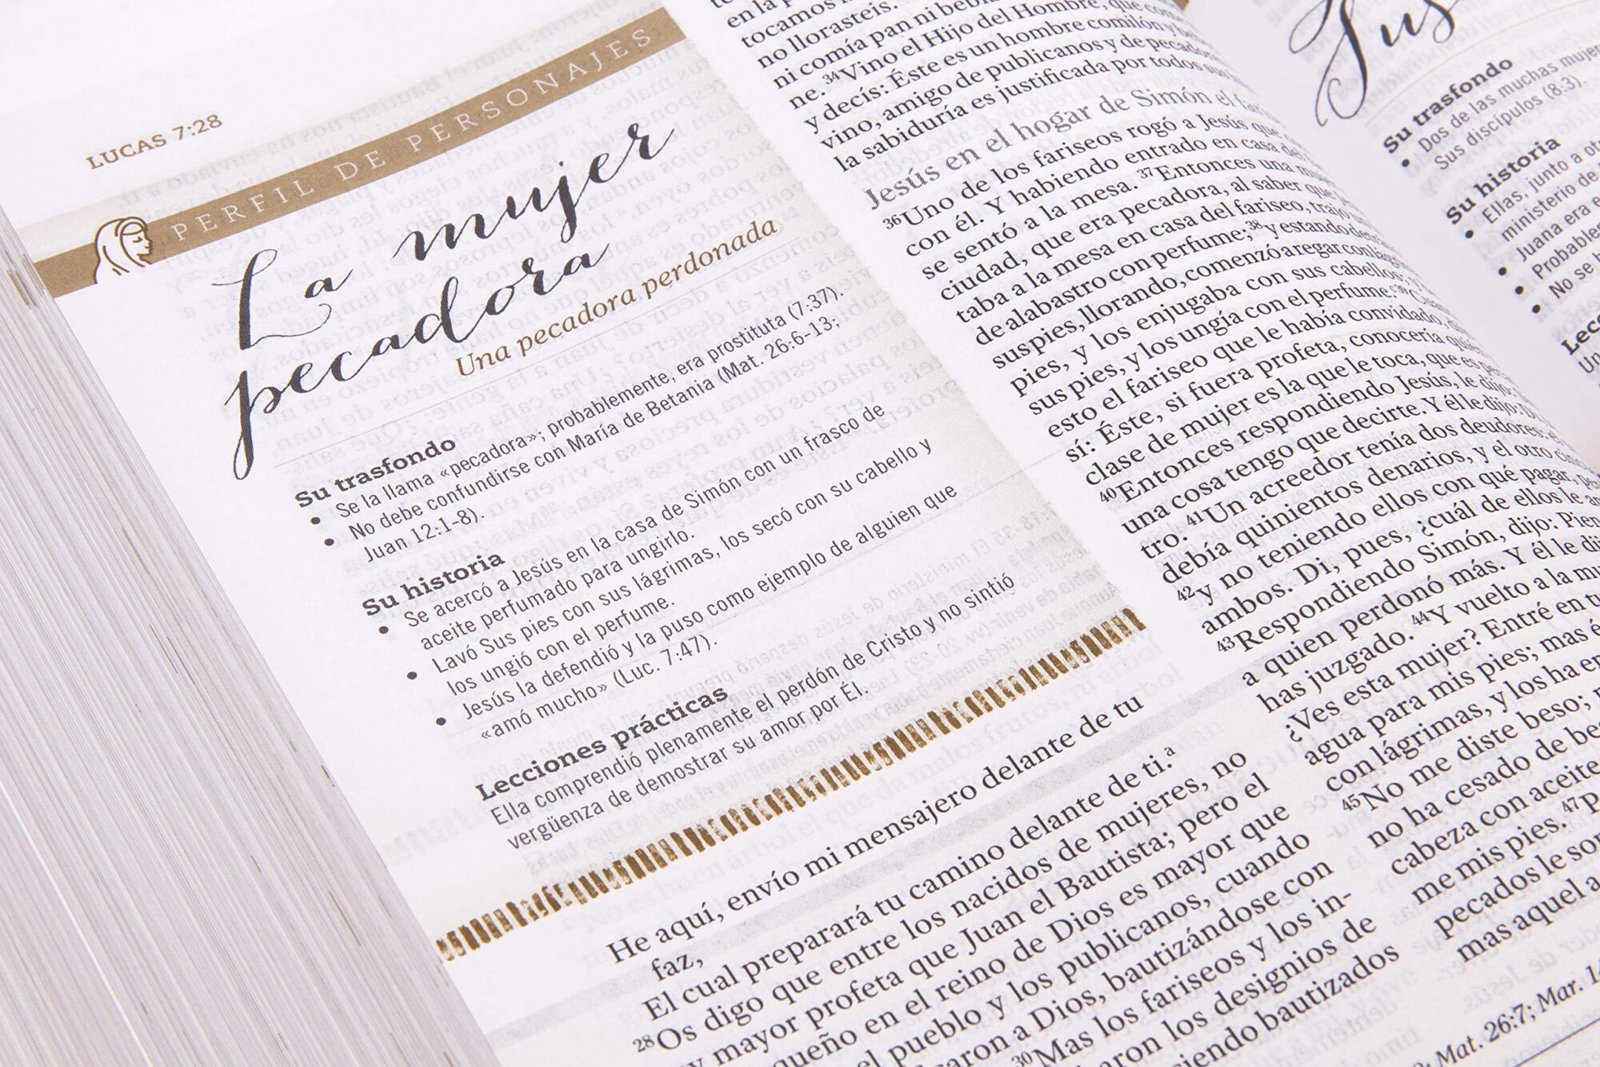 LUCAS 7:28
PERFIL DE PERSONAJES
La mujer
pecadora
Una pecadora perdonada
Su trasfondo
• Se la llama «pecadora»; probablemente, era prostituta (7:37).
• No debe confundirse con María de Betania (Mat. 26:6-13;
Juan 12:1-8).
Su historia
• Se acercó a Jesús en la casa de Simón con un frasco de
aceite perfumado para ungirlo.
• Lavó Sus pies con sus lágrimas, los secó con su cabello y
los ungió con el perfume.
• Jesús la defendió y la puso como ejemplo de alguien que
«amó mucho» (Luc. 7:47).
Lecciones prácticas
Ella comprendió plenamente el perdón de Cristo y no sintió
vergüenza de demostrar su amor por Él.
He aquí, envío mi mensajero delante de tu
faz,
El cual preparará tu camino delante de ti.ª
28Os digo que entre los nacidos de mujeres, no
y mayor profeta que Juan el Bautista; pero el
queño en el reino de Dios es mayor que
el pueblo y los publicanos, cuando
a Dios, bautizándose con
30Mas los fariseos y los in-
los designios de
bautizados
en la
tocamos
no llorasteis.
ni comía pan ni
ne. 34Vino el Hijo del Hombre, que
y decís: Éste es un hombre comilón y
vino, amigo de publicanos y de
la sabiduría es justificada por todos
Jesús en el hogar de Simón el
36Uno de los fariseos rogó a Jesús que
con él. Y habiendo entrado en casa del
se sentó a la mesa. 37Entonces una
ciudad, que era pecadora, al saber que
taba a la mesa en casa del fariseo, trajo
de alabastro con perfume; 38y estando
sus pies, llorando, comenzó a regar con
pies, y los enjugaba con sus cabellos;
sus pies, y los ungía con el perfume. 39
esto el fariseo que le había convidado,
sí: Éste, si fuera profeta, conocería
clase de mujer es la que le toca, que es
40Entonces respondiendo Jesús, le dijo:
una cosa tengo que decirte. Y él le dijo:
41Un acreedor tenía dos deudores:
debía quinientos denarios, y el otro
42y no teniendo ellos con qué pagar,
ambos. Di, pues, ¿cuál de ellos le
43Respondiendo Simón, dijo:
a quien perdonó más. Y él le
has juzgado. 44Y vuelto a la
¿Ves esta mujer? Entré en
agua para mis pies; mas
con lágrimas, y los ha
45No me diste beso;
no ha cesado de
cabeza con aceite
me mis pies. 47
pecados le
mas aquel a
Mat. 26:7; Mar.
Su trasfondo
• Dos de las muchas
Sus discípulos (8:3).
Su historia
• Ellas, junto a
ministerio de
• Juana era
•
• No se